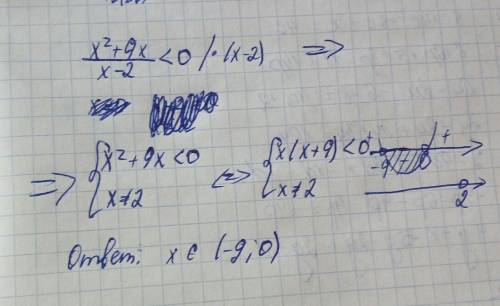 (x²+9x)/(x-2) < 0 | · (x-2) =>
=> { x²+9x < 0 <=> { x(x+9) < 0 + -9 - 0 +
x ≠ 2 x ≠ 2 2
Ответ: x ∈ (-9; 0)